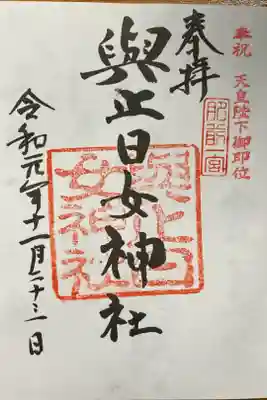 奉祝 天皇陛下御即位
奉拝
肥前一宮
與止日女神社
與止日女神社
令和元年十一月二十三日